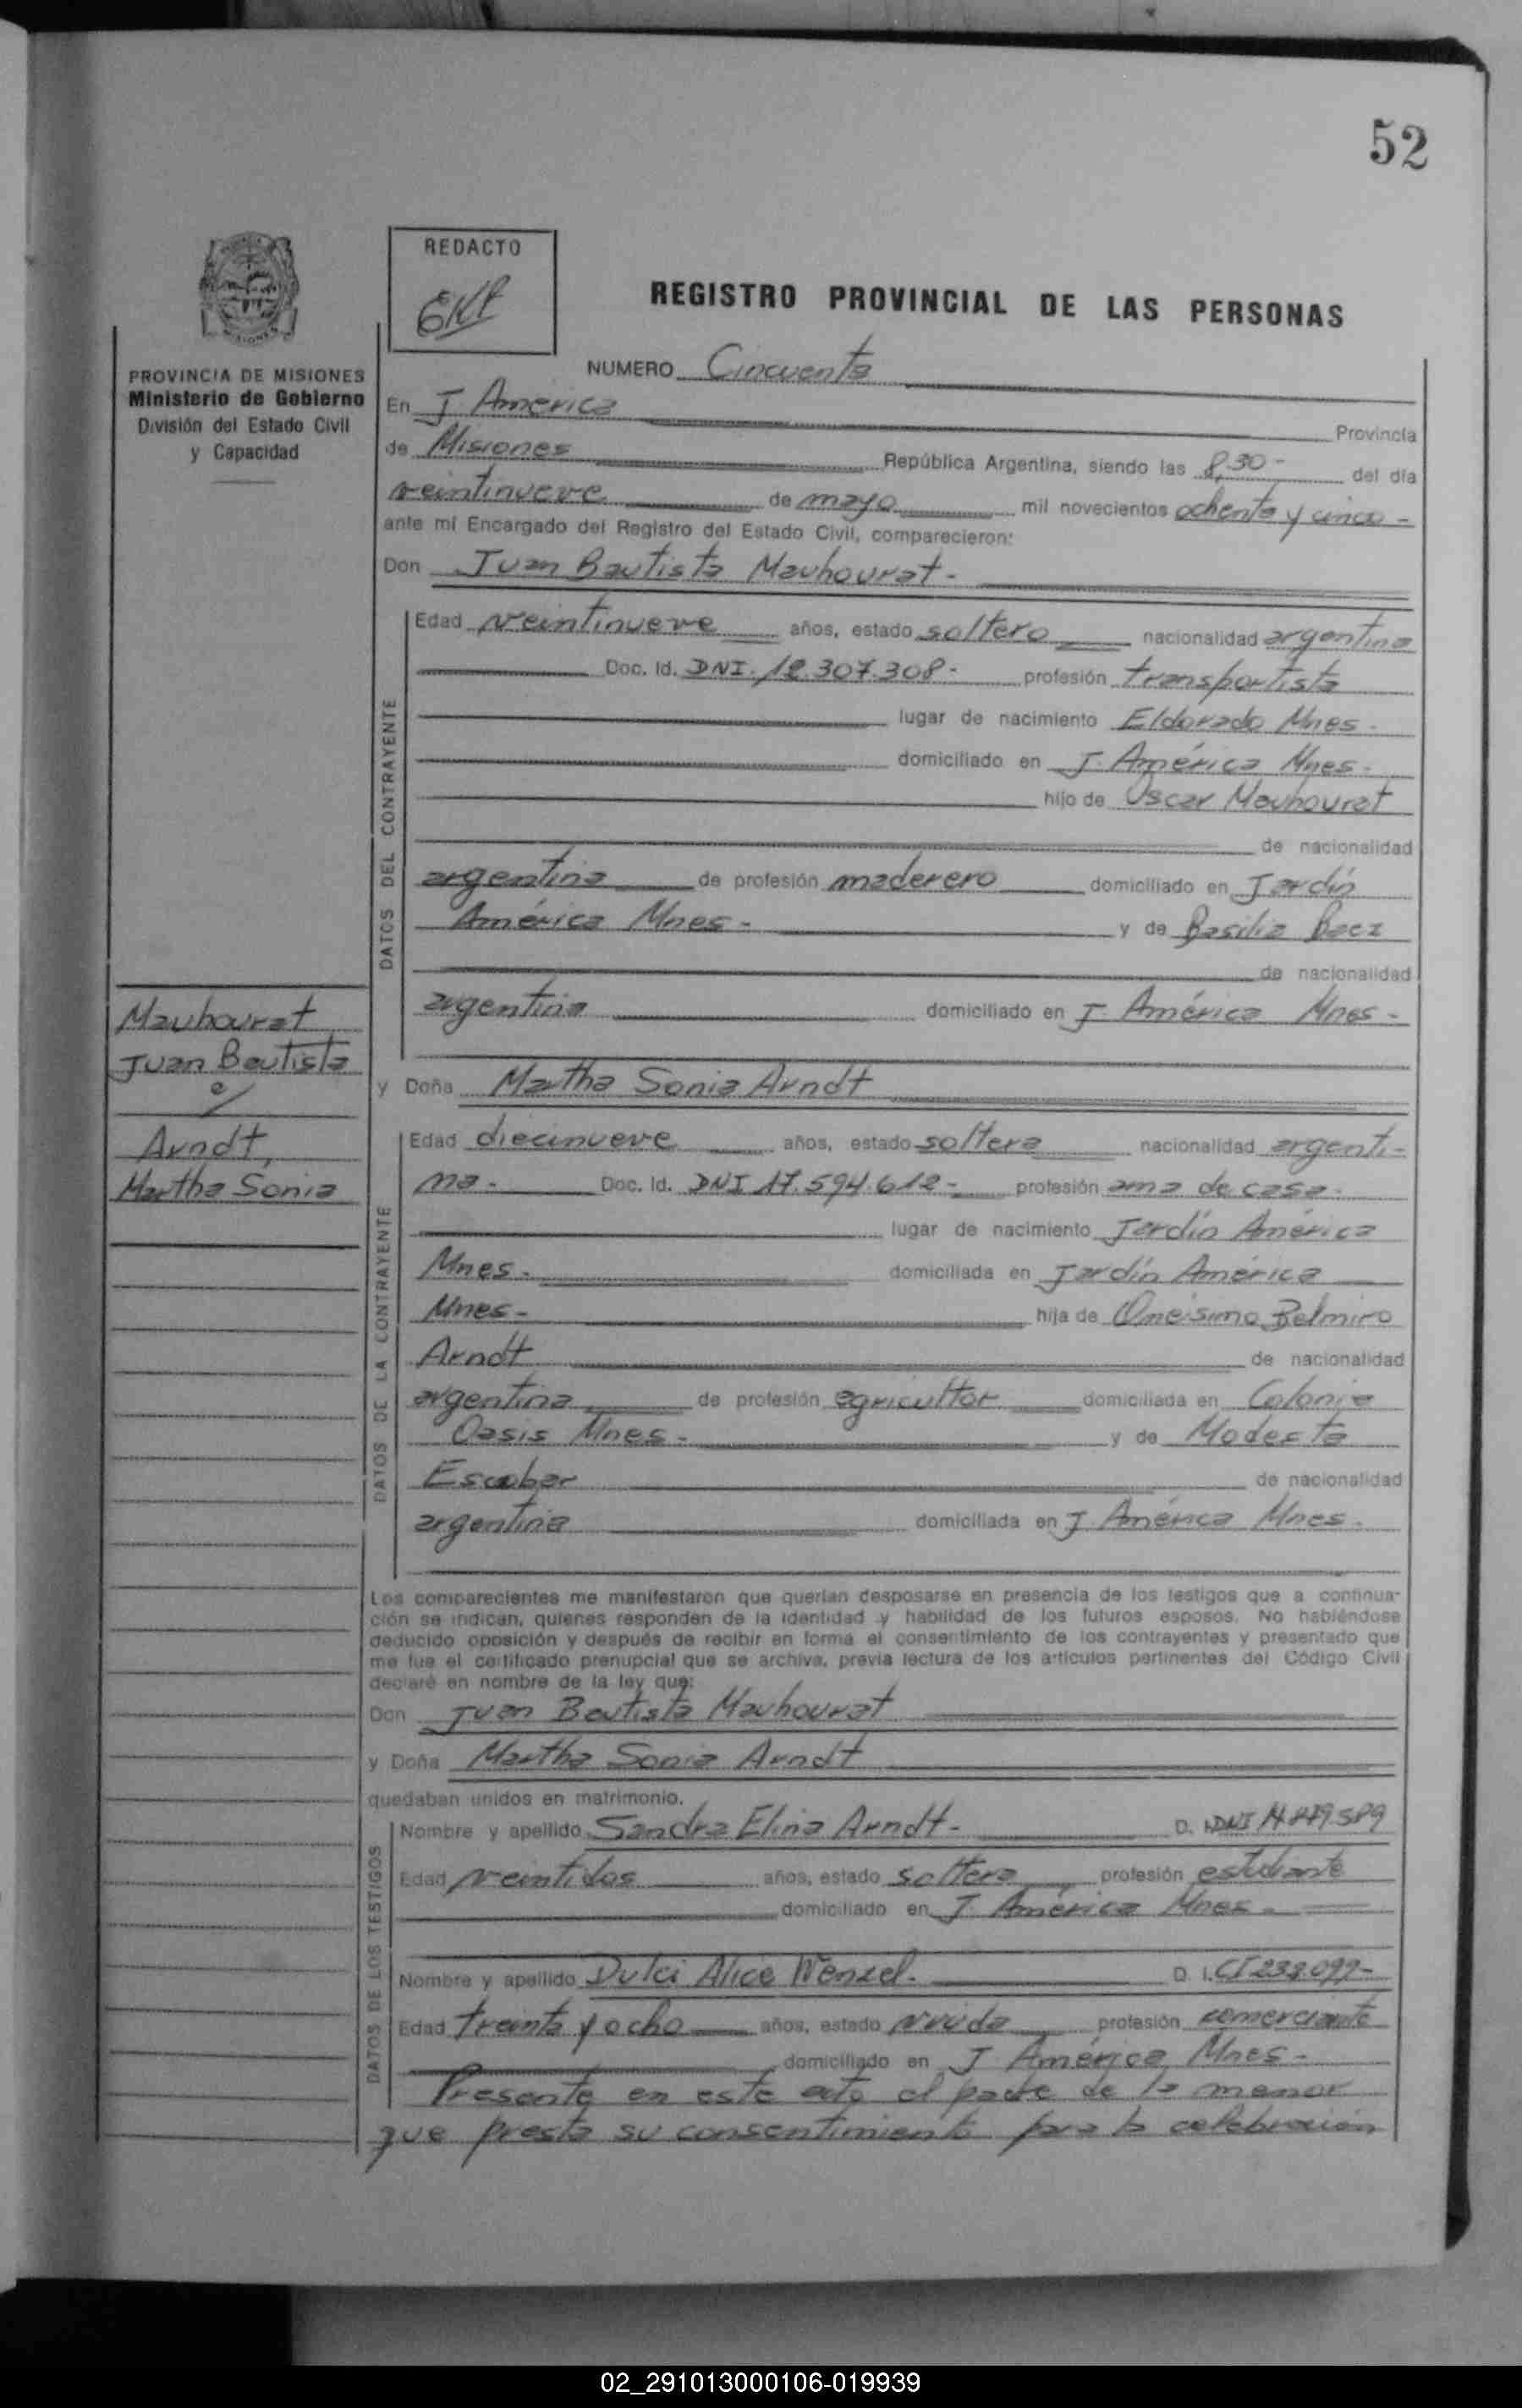 52
REDACTO
REGISTRO PROVINCIAL DE LAS PERSONAS
PROVINCIA DE MISIONES
Ministerio de Gobierno
División del Estado Civil
y Capacidad
NUMERO Cincuenta
En J. America Provincia
de Misiones República Argentina, siendo las 8,30- del día
veintinueve de mayo mil novecientos ochenta y cinco-
ante mí Encargado del Registro del Estado Civil, comparecieron:
Don Juan Bautista Mauhourat-
DATOS DEL CONTRAYENTE
Edad veintinueve años, estado soltero nacionalidad argentina
Doc. Id. DNI. 12.307.308- profesión transportista
lugar de nacimiento Eldorado Mnes-
domiciliado en J. América Mnes-
hijo de Oscar Mauhourat
de nacionalidad
argentina de profesión maderero domiciliado en Jardín
América Mnes- y de Basilia Baez
de nacionalidad
argentina domiciliado en J. América Mnes-
Mauhourat
Juan Bautista
c/
Arndt,
Martha Sonia
y Doña Martha Sonia Arndt
DATOS DE LA CONTRAYENTE
Edad diecinueve años, estado soltera nacionalidad argenti-
na- Doc. Id. DNI 17.594.612- profesión ama de casa-
lugar de nacimiento Jardín América
Mnes- domiciliada en Jardín América
Mnes- hija de Onésimo Belmiro
Arndt de nacionalidad
argentina de profesión agricultor domiciliada en Colonia
Oasis Mnes- y de Modesta
Escobar de nacionalidad
argentina domiciliada en J. América Mnes-
Los comparecientes me manifestaron que querían desposarse en presencia de los testigos que a continua-
ción se indican, quienes responden de la identidad y habilidad de los futuros esposos. No habiéndose
deducido oposición y después de recibir en forma el consentimiento de los contrayentes y presentado que
me fue el certificado prenupcial que se archiva, previa lectura de los artículos pertinentes del Código Civil
declaré en nombre de la ley que:
Don Juan Bautista Mauhourat
y Doña Martha Sonia Arndt
quedaban unidos en matrimonio.
DATOS DE LOS TESTIGOS
Nombre y apellido Sandra Elina Arndt- D. I. DNI
Edad veintidos años, estado soltera profesión estudiante
domiciliado en J. América Mnes-
Nombre y apellido Dulci Alice Wenzel- D. I. CI 238.099-
Edad treinta y ocho años, estado viuda profesión comerciante
domiciliado en J. América Mnes-
Presente en este acto el padre de la menor
que presta su consentimiento para la celebración
02_291013000106-019939